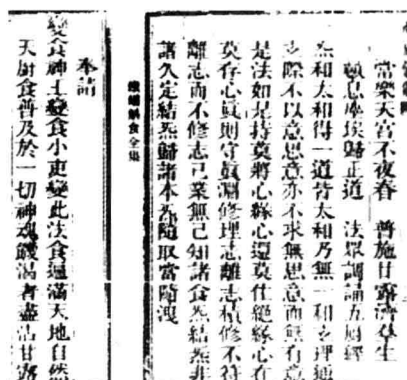 當樂天宮不夜春 普施甘露濟羣生
願息塵埃歸正道 法眾調誦五厨經
炁和太和得一道皆太和乃無一和玄理通
玄際不以意思意亦不求無思意而無有意
是法如是持莫將心緣心還莫住絕緣心在
莫存心真則守真淵修理志離志積修不符
離志而不修志己業無己知諸食炁結炁非
諸久定結炁歸諸本炁隨取當隨洩
鐵罐斛食全集
奉請
變食神士變食小吏變此法食遍滿天地自然
天厨食普及於一切神魂饑渴者盡沾甘露